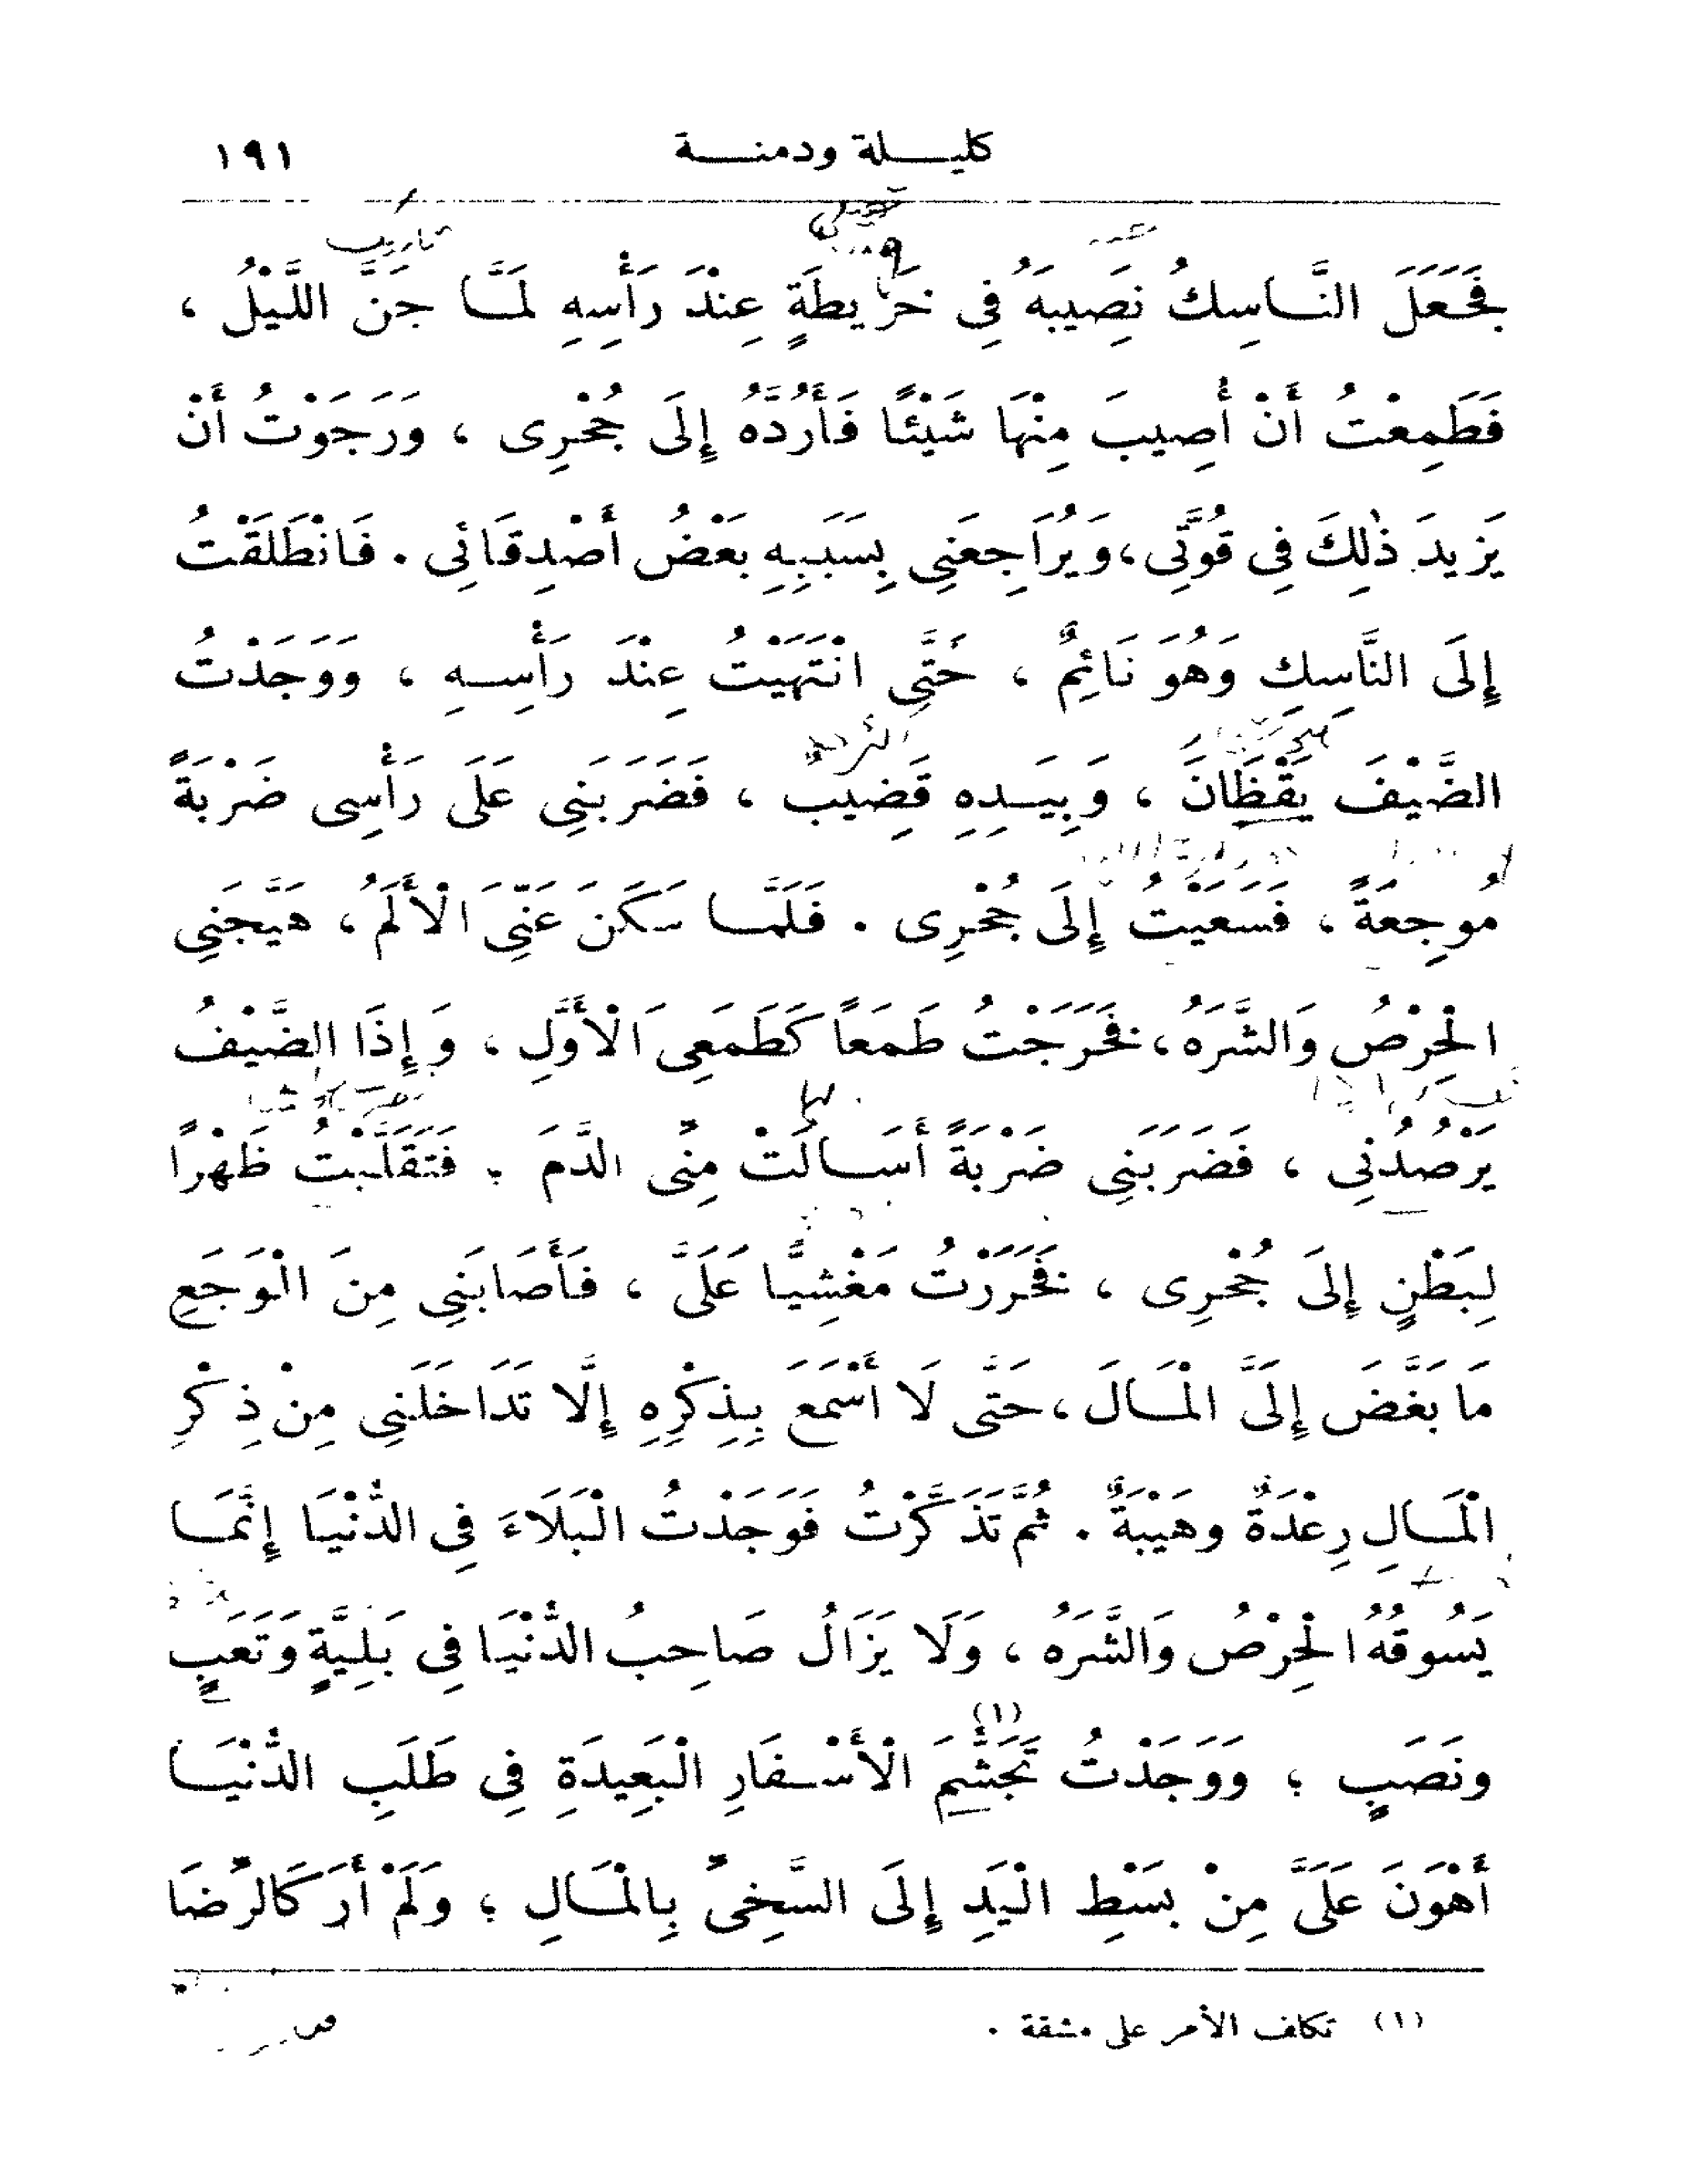 كليلة ودمنة ١٩١
فَجَعَلَ النَّاسِكُ نَصِيبَهُ فِى خَرِيطَةٍ عِنْدَ رَأْسِهِ لَمَّا جَنَّ اللَّيْلُ ،
فَطَمِعْتُ أَنْ أُصِيبَ مِنْهَا شَيْئًا فَأَرُدَّهُ إِلَى جُحْرِى ، وَرَجَوْتُ أَنْ
يَزِيدَ ذٰلِكَ فِى قُوَّتِى ، وَيُرَاجِعَنِى بِسَبَبِهِ بَعْضُ أَصْدِقَائِى . فَانْطَلَقْتُ
إِلَى النَّاسِكِ وَهُوَ نَائِمٌ ، حَتَّى انْتَهَيْتُ عِنْدَ رَأْسِهِ ، وَوَجَدْتُ
الضَّيْفَ يَقْظَانَ ، وَبِيَدِهِ قَضِيبٌ ، فَضَرَبَنِى عَلَى رَأْسِى ضَرْبَةً
مُوجِعَةً ، فَسَعَيْتُ إِلَى جُحْرِى . فَلَمَّا سَكَنَ عَنِّىَ الْأَلَمُ ، هَيَّجَنِى
الْحِرْصُ وَالشَّرَهُ ، فَخَرَجْتُ طَمَعًا كَطَمَعِى الْأَوَّلِ ، وَإِذَا الضَّيْفُ
يَرْصُدُنِى ، فَضَرَبَنِى ضَرْبَةً أَسَالَتْ مِنِّى الدَّمَ ؛ فَتَقَلَّبْتُ ظَهْرًا
لِبَطْنٍ إِلَى جُحْرِى ، فَخَرَرْتُ مَغْشِيًّا عَلَىَّ ، فَأَصَابَنِى مِنَ الْوَجَعِ
مَا بَغَّضَ إِلَىَّ الْمَالَ ، حَتَّى لَا أَسْمَعَ بِذِكْرِهِ إِلَّا تَدَاخَلَنِى مِنْ ذِكْرِ
الْمَالِ رِعْدَةٌ وهَيْبَةٌ . ثُمَّ تَذَكَّرْتُ فَوَجَدْتُ الْبَلَاءَ فِى الدُّنْيَا إِنَّمَا
يَسُوقُهُ الْحِرْصُ وَالشَّرَهُ ، وَلَا يَزَالُ صَاحِبُ الدُّنْيَا فِى بَلِيَّةٍ وَتَعَبٍ
ونَصَبٍ ؛ وَوَجَدْتُ تَجَشُّمَ (١) الْأَسْفَارِ الْبَعِيدَةِ فِى طَلَبِ الدُّنْيَا
أَهْوَنَ عَلَىَّ مِنْ بَسْطِ الْيَدِ إِلَى السَّخِىِّ بِالْمَالِ ؛ وَلَمْ أَرَ كَالرِّضَا
(١) تكلف الأمر على مشقة .